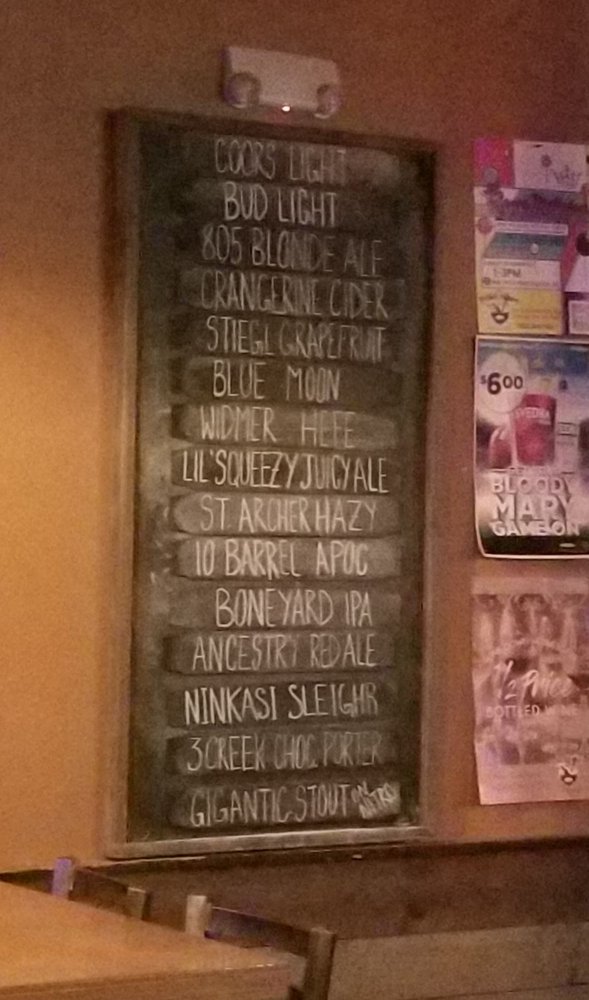 COORS LIGHT
BUD LIGHT
805 BLONDE ALE
CRANGERINE CIDER
STIEGL GRAPEFRUIT
BLUE MOON
WIDMER HEFE
LIL' SQUEEZY JUICY ALE
ST. ARCHER HAZY
10 BARREL APOC
BONEYARD IPA
ANCESTRY RED ALE
NINKASI SLEIGHR
3 CREEK CHOC PORTER
GIGANTIC STOUT ON NITRO
1-3PM
$600
BLOODY
MARY
GAME ON
1/2 Price
BOTTLED WINE